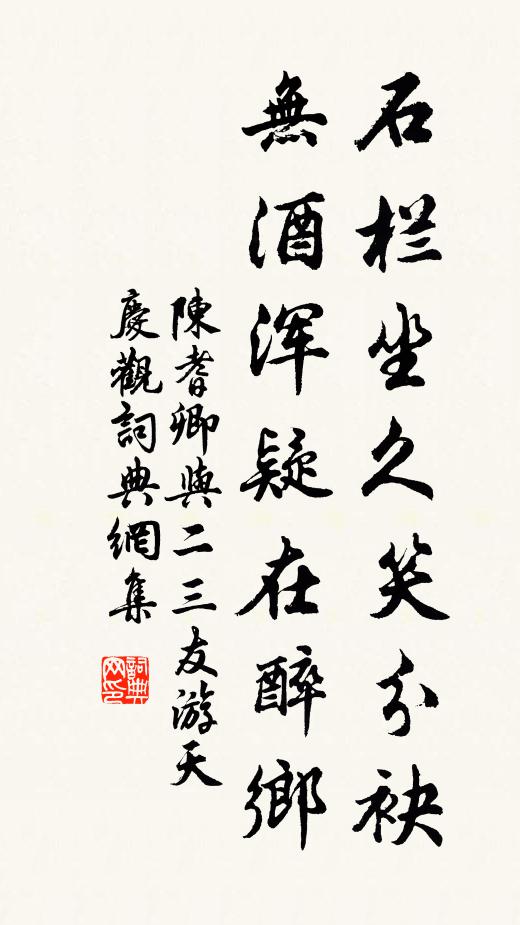 石栏坐久笑分袂
無酒浑疑在醉鄉
陳耆卿與二三友游天
慶觀詞典網集
詞典網印